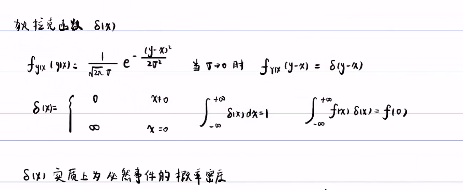 狄拉克函数 δ(x)
f_{Y|X}(y|x) = \frac{1}{\sqrt{2π} σ} e^{-\frac{(y-x)^2}{2σ^2}} 当 σ→0 时 f_{Y|X}(y-x) = δ(y-x)
δ(x) = { 0 x≠0 ; ∞ x=0 ∫_{-∞}^{+∞} δ(x) dx = 1 ∫_{-∞}^{+∞} f(x) δ(x) = f(0)
δ(x) 实质上为必然事件的概率密度